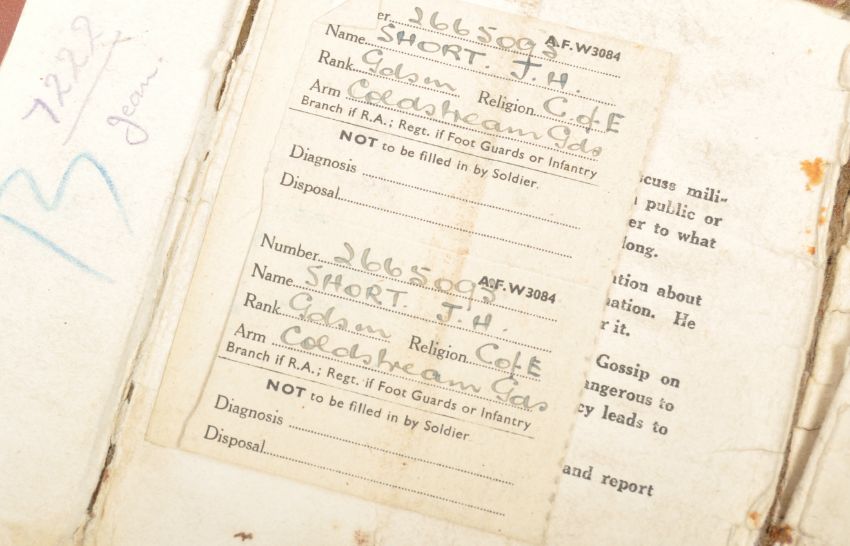 7222
Jean
B
er. 2665093
A.F.W3084
Name SHORT. J.H.
Rank Gdsm Religion C of E
Arm Coldstream Gds
Branch if R.A.; Regt. if Foot Guards or Infantry
NOT to be filled in by Soldier.
Diagnosis
Disposal
Number 2665093
A.F.W3084
Name SHORT. J.H.
Rank Gdsm Religion C of E
Arm Coldstream Gds
Branch if R.A.; Regt. if Foot Guards or Infantry
NOT to be filled in by Soldier
Diagnosis
Disposal
scuss mili-
public or
er to what
long.
tion about
nation. He
r it.
Gossip on
angerous to
cy leads to
and report